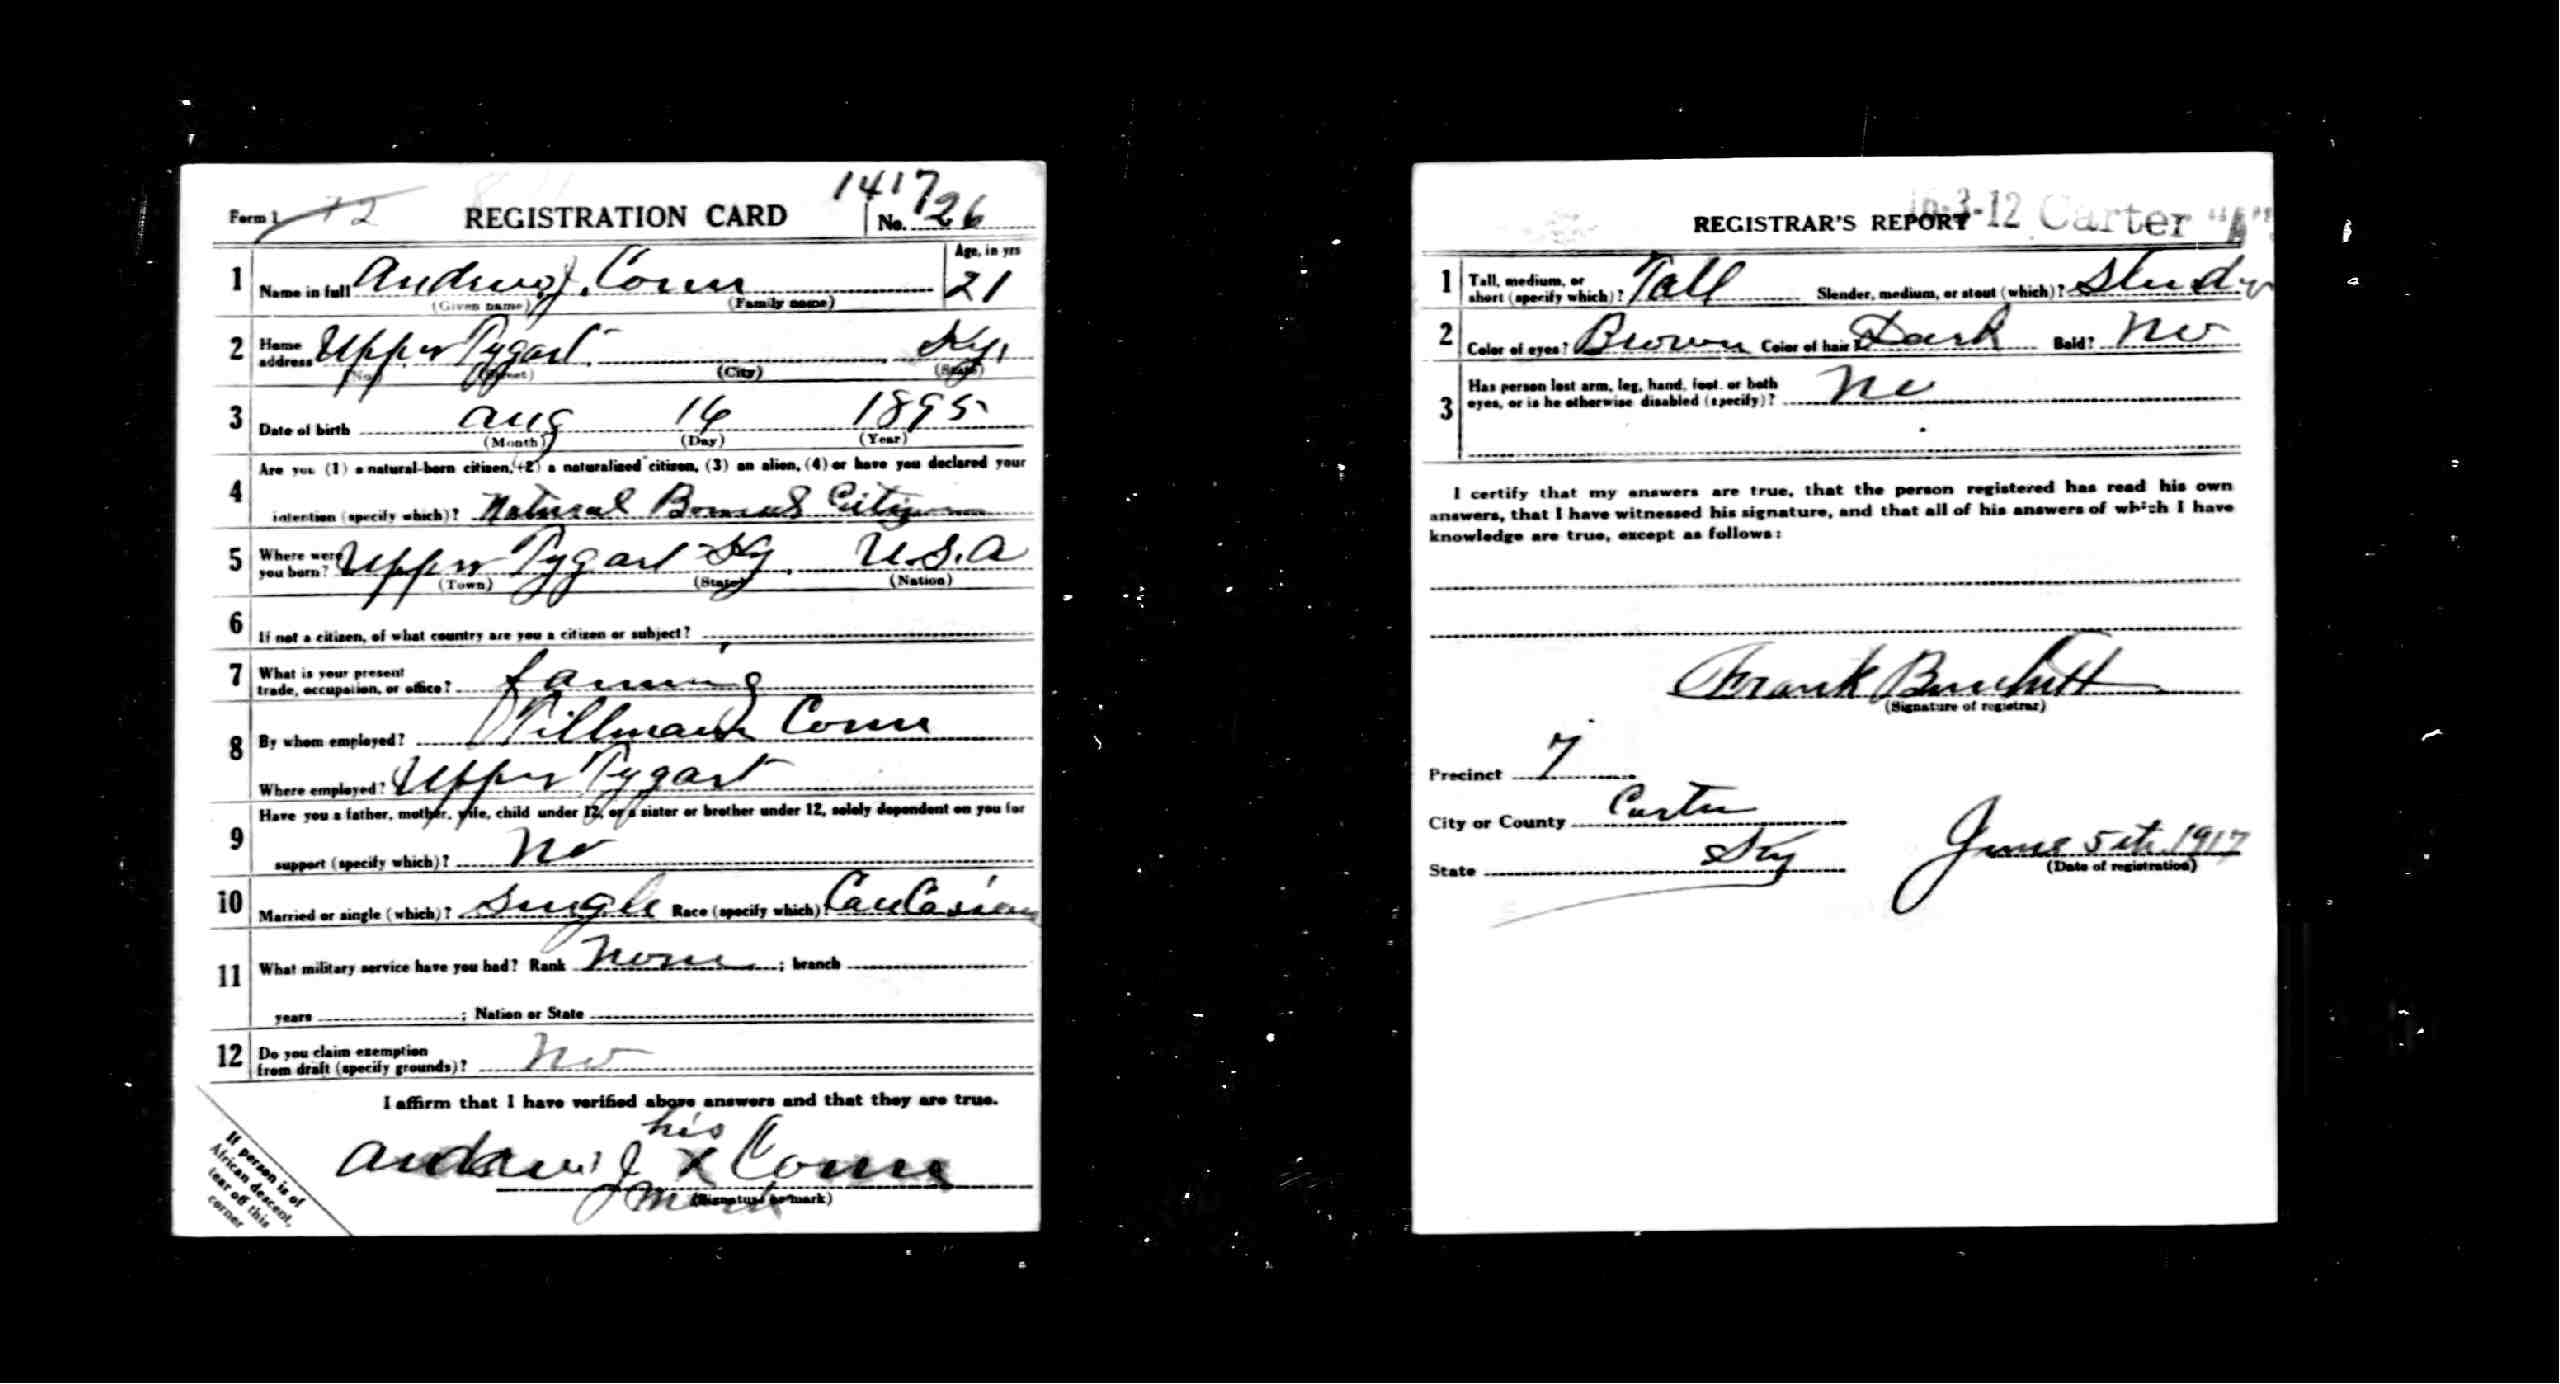 1417
Form 1 12 REGISTRATION CARD No. 26
1 Name in full Andrew J. Conn Age, in yrs 21
(Given name) (Family name)
2 Home address Upper Tygart, Ky,
(No.) (Street) (City) (State)
3 Date of birth Aug 16 1895
(Month) (Day) (Year)
4 Are you (1) a natural-born citizen, (2) a naturalized citizen, (3) an alien, (4) or have you declared your
intention (specify which)? Natural
5 Where were you born? Upper Tygart Ky, U.S.A
(Town) (State) (Nation)
6 If not a citizen, of what country are you a citizen or subject?
7 What is your present
trade, occupation, or office? farming
8 By whom employed? Conn
Where employed? Upper Tygart
9 Have you a father, mother, wife, child under 12, or a sister or brother under 12, solely dependent on you for
support (specify which)? No
10 Married or single (which)? Single Race (specify which)? Caucasian
11 What military service have you had? Rank None ; branch
years ; Nation or State
12 Do you claim exemption
from draft (specify grounds)? No
I affirm that I have verified above answers and that they are true.
his
Andrew J X Conn
mark
(Signature or mark)
If person is of
African descent,
tear off this
corner
16-3-12 Carter "A"
REGISTRAR'S REPORT
1 Tall, medium, or
short (specify which)? Tall Slender, medium, or stout (which)? Slender
2 Color of eyes? Brown Color of hair? Dark Bald? No
3 Has person lost arm, leg, hand, foot, or both
eyes, or is he otherwise disabled (specify)? No
I certify that my answers are true, that the person registered has read his own
answers, that I have witnessed his signature, and that all of his answers of which I have
knowledge are true, except as follows:
Frank Burchett
(Signature of registrar)
Precinct 7
City or County Carter
State Ky June 5th 1917
(Date of registration)